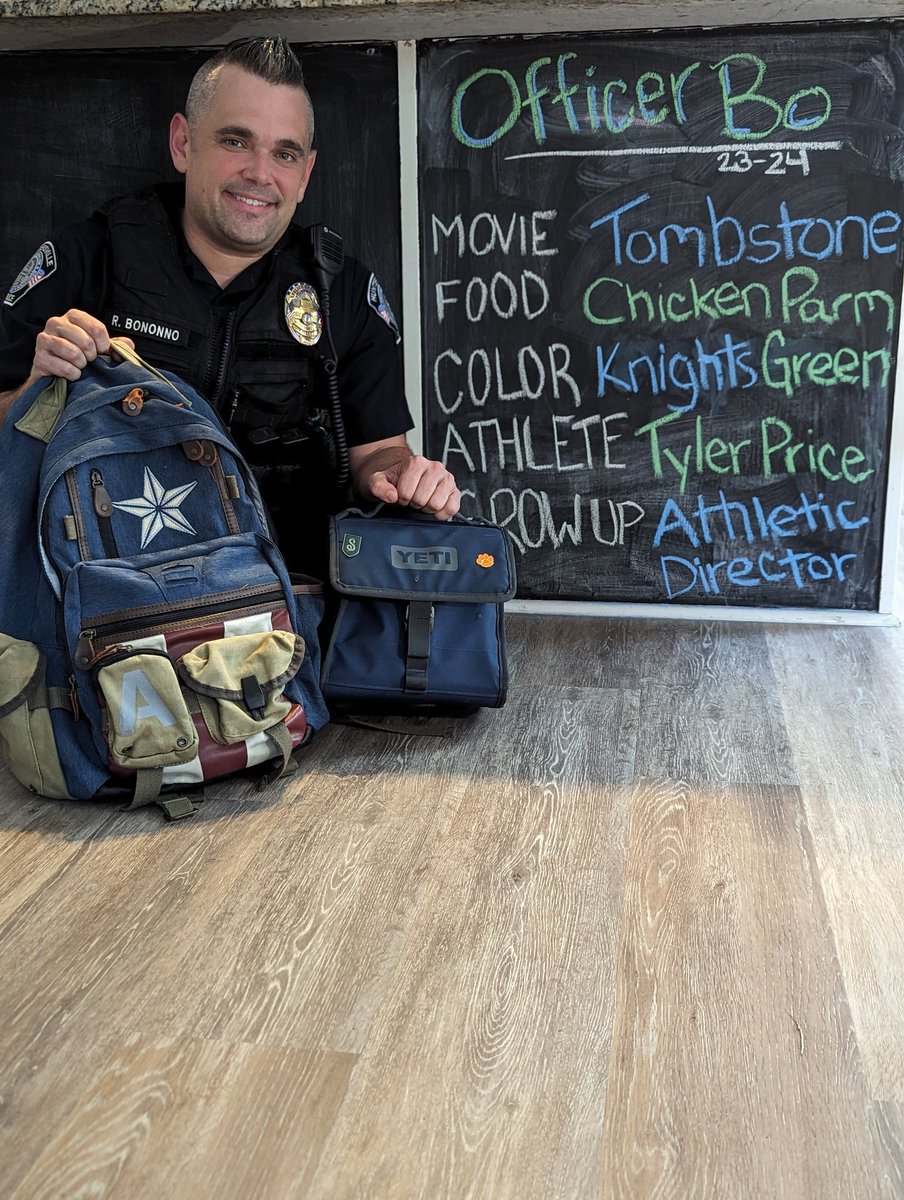 Officer Bo
23-24
MOVIE Tombstone
FOOD Chicken Parm
COLOR Knights Green
ATHLETE Tyler Price
GROWUP Athletic
Director
R. BONONNO
YETI
S
A